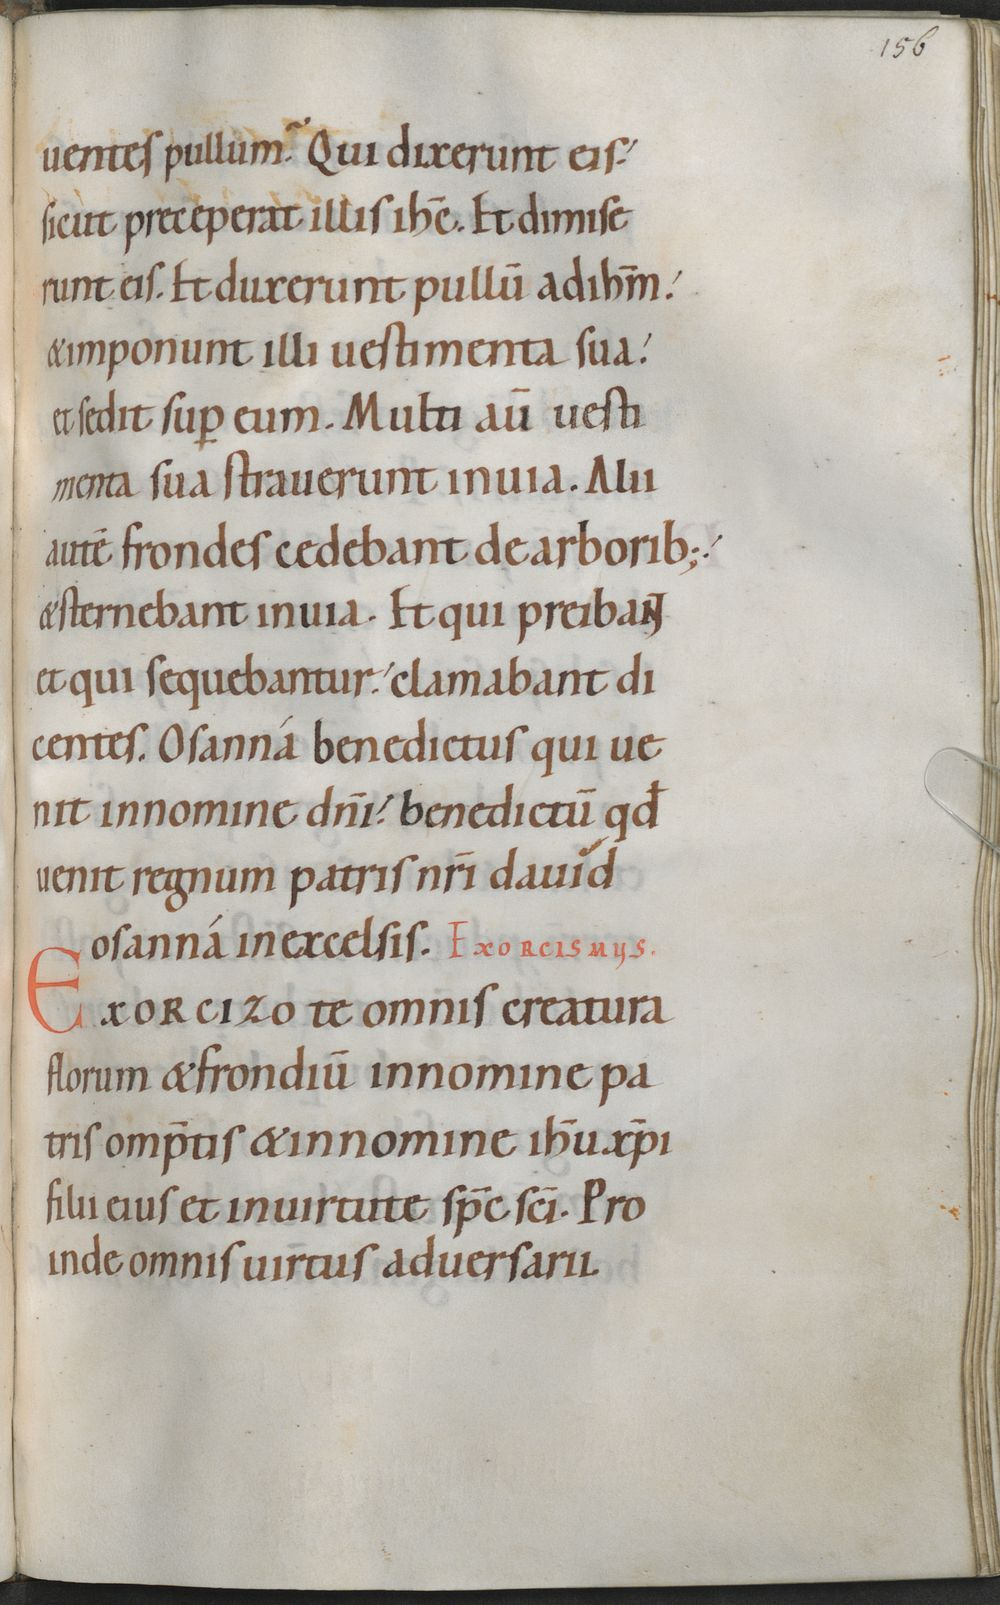 156
uentes pullum. Qui dixerunt eis.
sicut preceperat illis ihc̄. Et dimise
runt eis. Et duxerunt pullū ad ihm̄.
&imponunt illi uestimenta sua.
et sedit suꝑ eum. Multi aū uesti
menta sua strauerunt in uia. Alii
autē frondes cedebant de arborib;.
&sternebant in uia. Et qui preibant
et qui sequebantur. clamabant di
centes. Osanná benedictus qui ue
nit in nomine dn̄i. benedictū qd̄
uenit regnum patris nr̄i dauid
osanná in excelsis. Exorcismus.
Exorcizo te omnis creatura
florum & frondiū in nomine pa
tris omp̄tis & in nomine ih̄u xp̄i
filii eius et in uirtute sp̄c sc̄i. Pro
inde omnis uirtus aduersarii